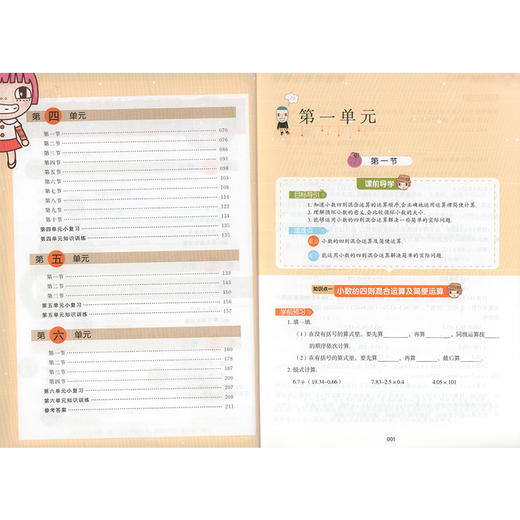 第 四 单元
第一节 070
第二节 076
第三节 084
第四节 091
第五节 098
第六节 105
第七节
第八节
第九节
第十节
第四单元小复习 133
第四单元知识训练 135
第 五 单元
第一节 139
第二节 145
第三节 151
第五单元小复习 155
第五单元知识训练 157
第 六 单元
第一节 160
第二节 178
第三节 183
第四节 200
第六单元小复习 207
第六单元知识训练 209
参考答案 211
第一单元
第一节
课前导学
目标导引
1. 知道小数四则混合运算的运算顺序,会正确地运用运算律简便计算。
2. 理解循环小数的意义,会比较循环小数的大小。
3. 能够运用小数的四则混合运算解决一些简单的实际问题。
小数的四则混合运算及简便运算。
能运用小数的四则混合运算解决简单的实际问题。
知识点一 小数的四则混合运算及简便运算
学前预习
1. 填一填。
(1)在没有括号的算式里,要先算______,再算______,同级运算按______
的顺序依次计算。
(2)在有括号的算式里,要先算______,再算______,最后算______。
2. 脱式计算。
6.7÷(19.34-0.66) 7.83-2.5×0.4 4.05×101
001